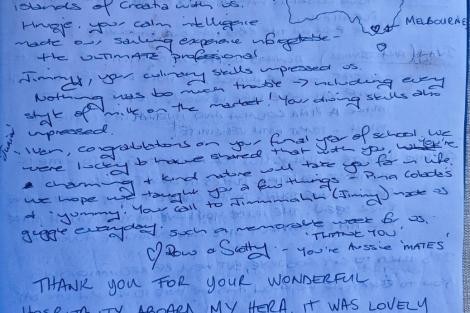 islands of Croatia with us.
Hrvoje, your calm intelligence
made our sailing experience unforgettable -
the ULTIMATE professional
MELBOURNE
Jimmy, your culinary skills impressed us.
Nothing was too much trouble → including every
style of milk on the market! Your diving skills also
impressed.
'Junior'
Iven, congratulations on your final year of school. We
were lucky to have shared that with you, You're
charming + kind nature will take you far in life.
We hope we taught you a few things - Pina Colada's
+ 'yummy'. Your call to Jimmmahhh (Jimmy) made us
giggle everyday. Such a memorable week for us.
'THANK YOU'
Row & Scotty - You're Aussie 'MATES'
THANK YOU FOR YOUR WONDERFUL
HOSPITALITY ABOARD MY HERA. IT WAS LOVELY